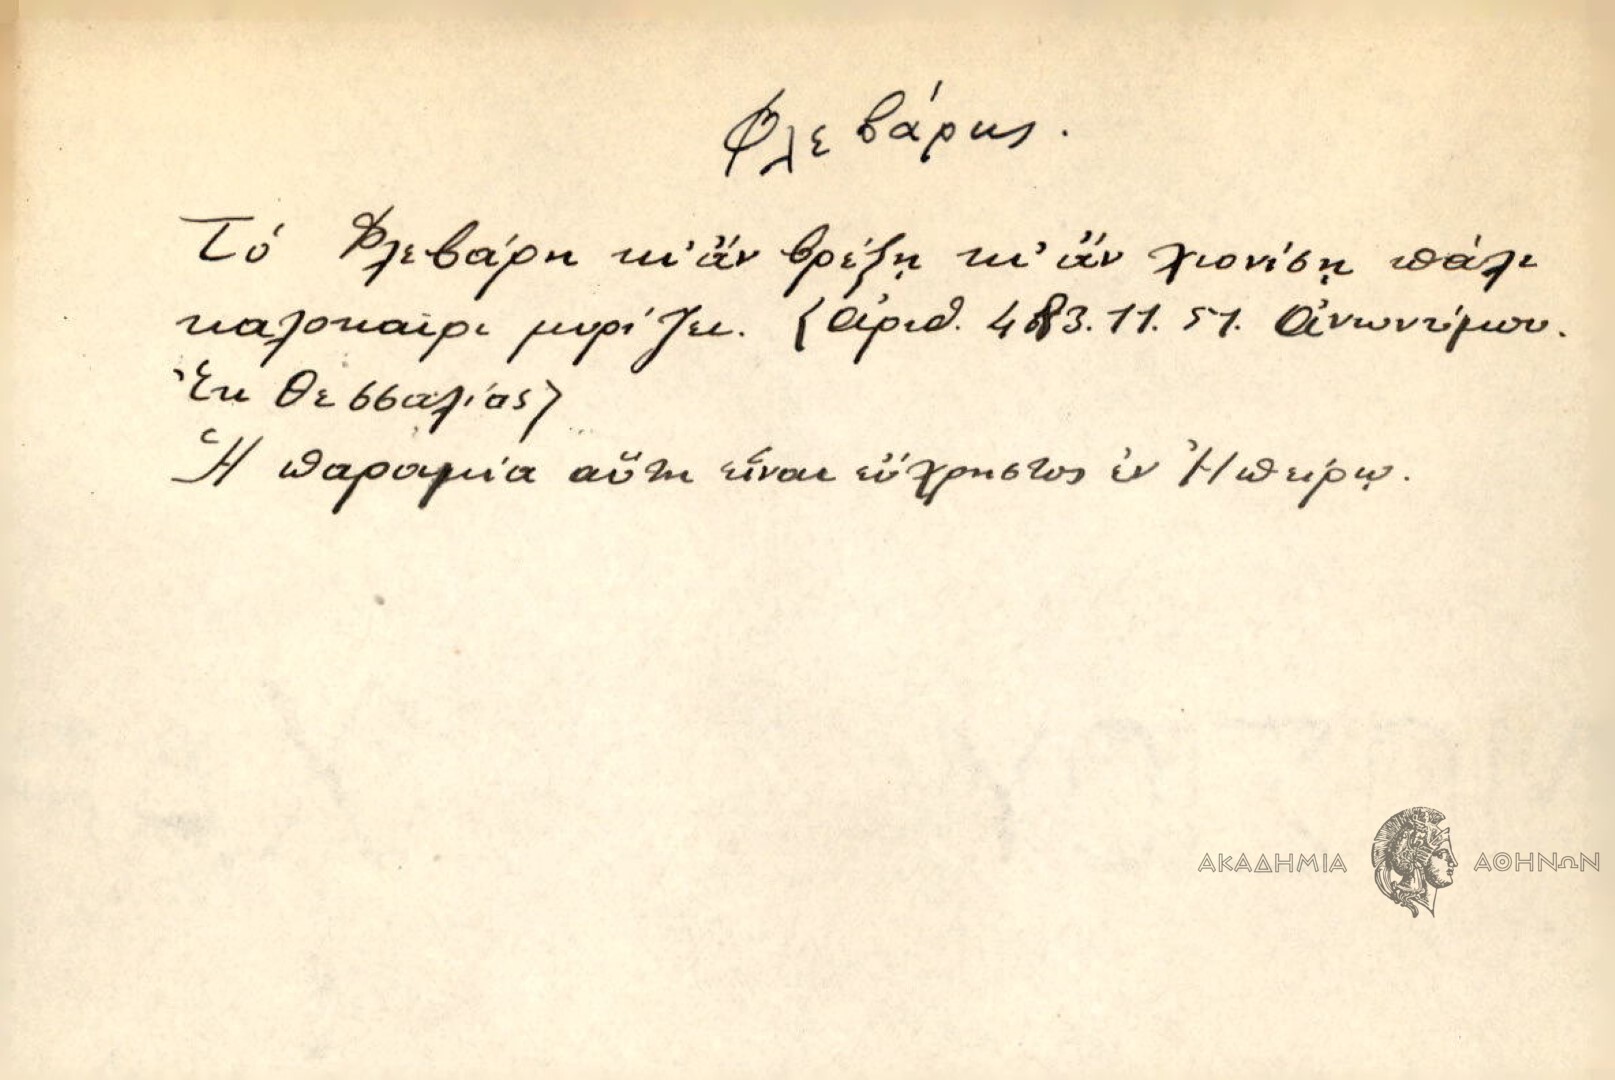 Φλεβάρης.
Τό Φλεβάρη κι' ἄν βρέξῃ κι' ἄν χιονίσῃ πάλι
καλοκαίρι μυρίζει. (Ἀριθ. 483.11.51. Ἀνωνύμου.
Ἐκ Θεσσαλίας)
Ἡ παροιμία αὕτη εἶναι εὔχρηστος ἐν Ἠπείρῳ.
ΑΚΑΔΗΜΙΑ ΑΘΗΝΩΝ